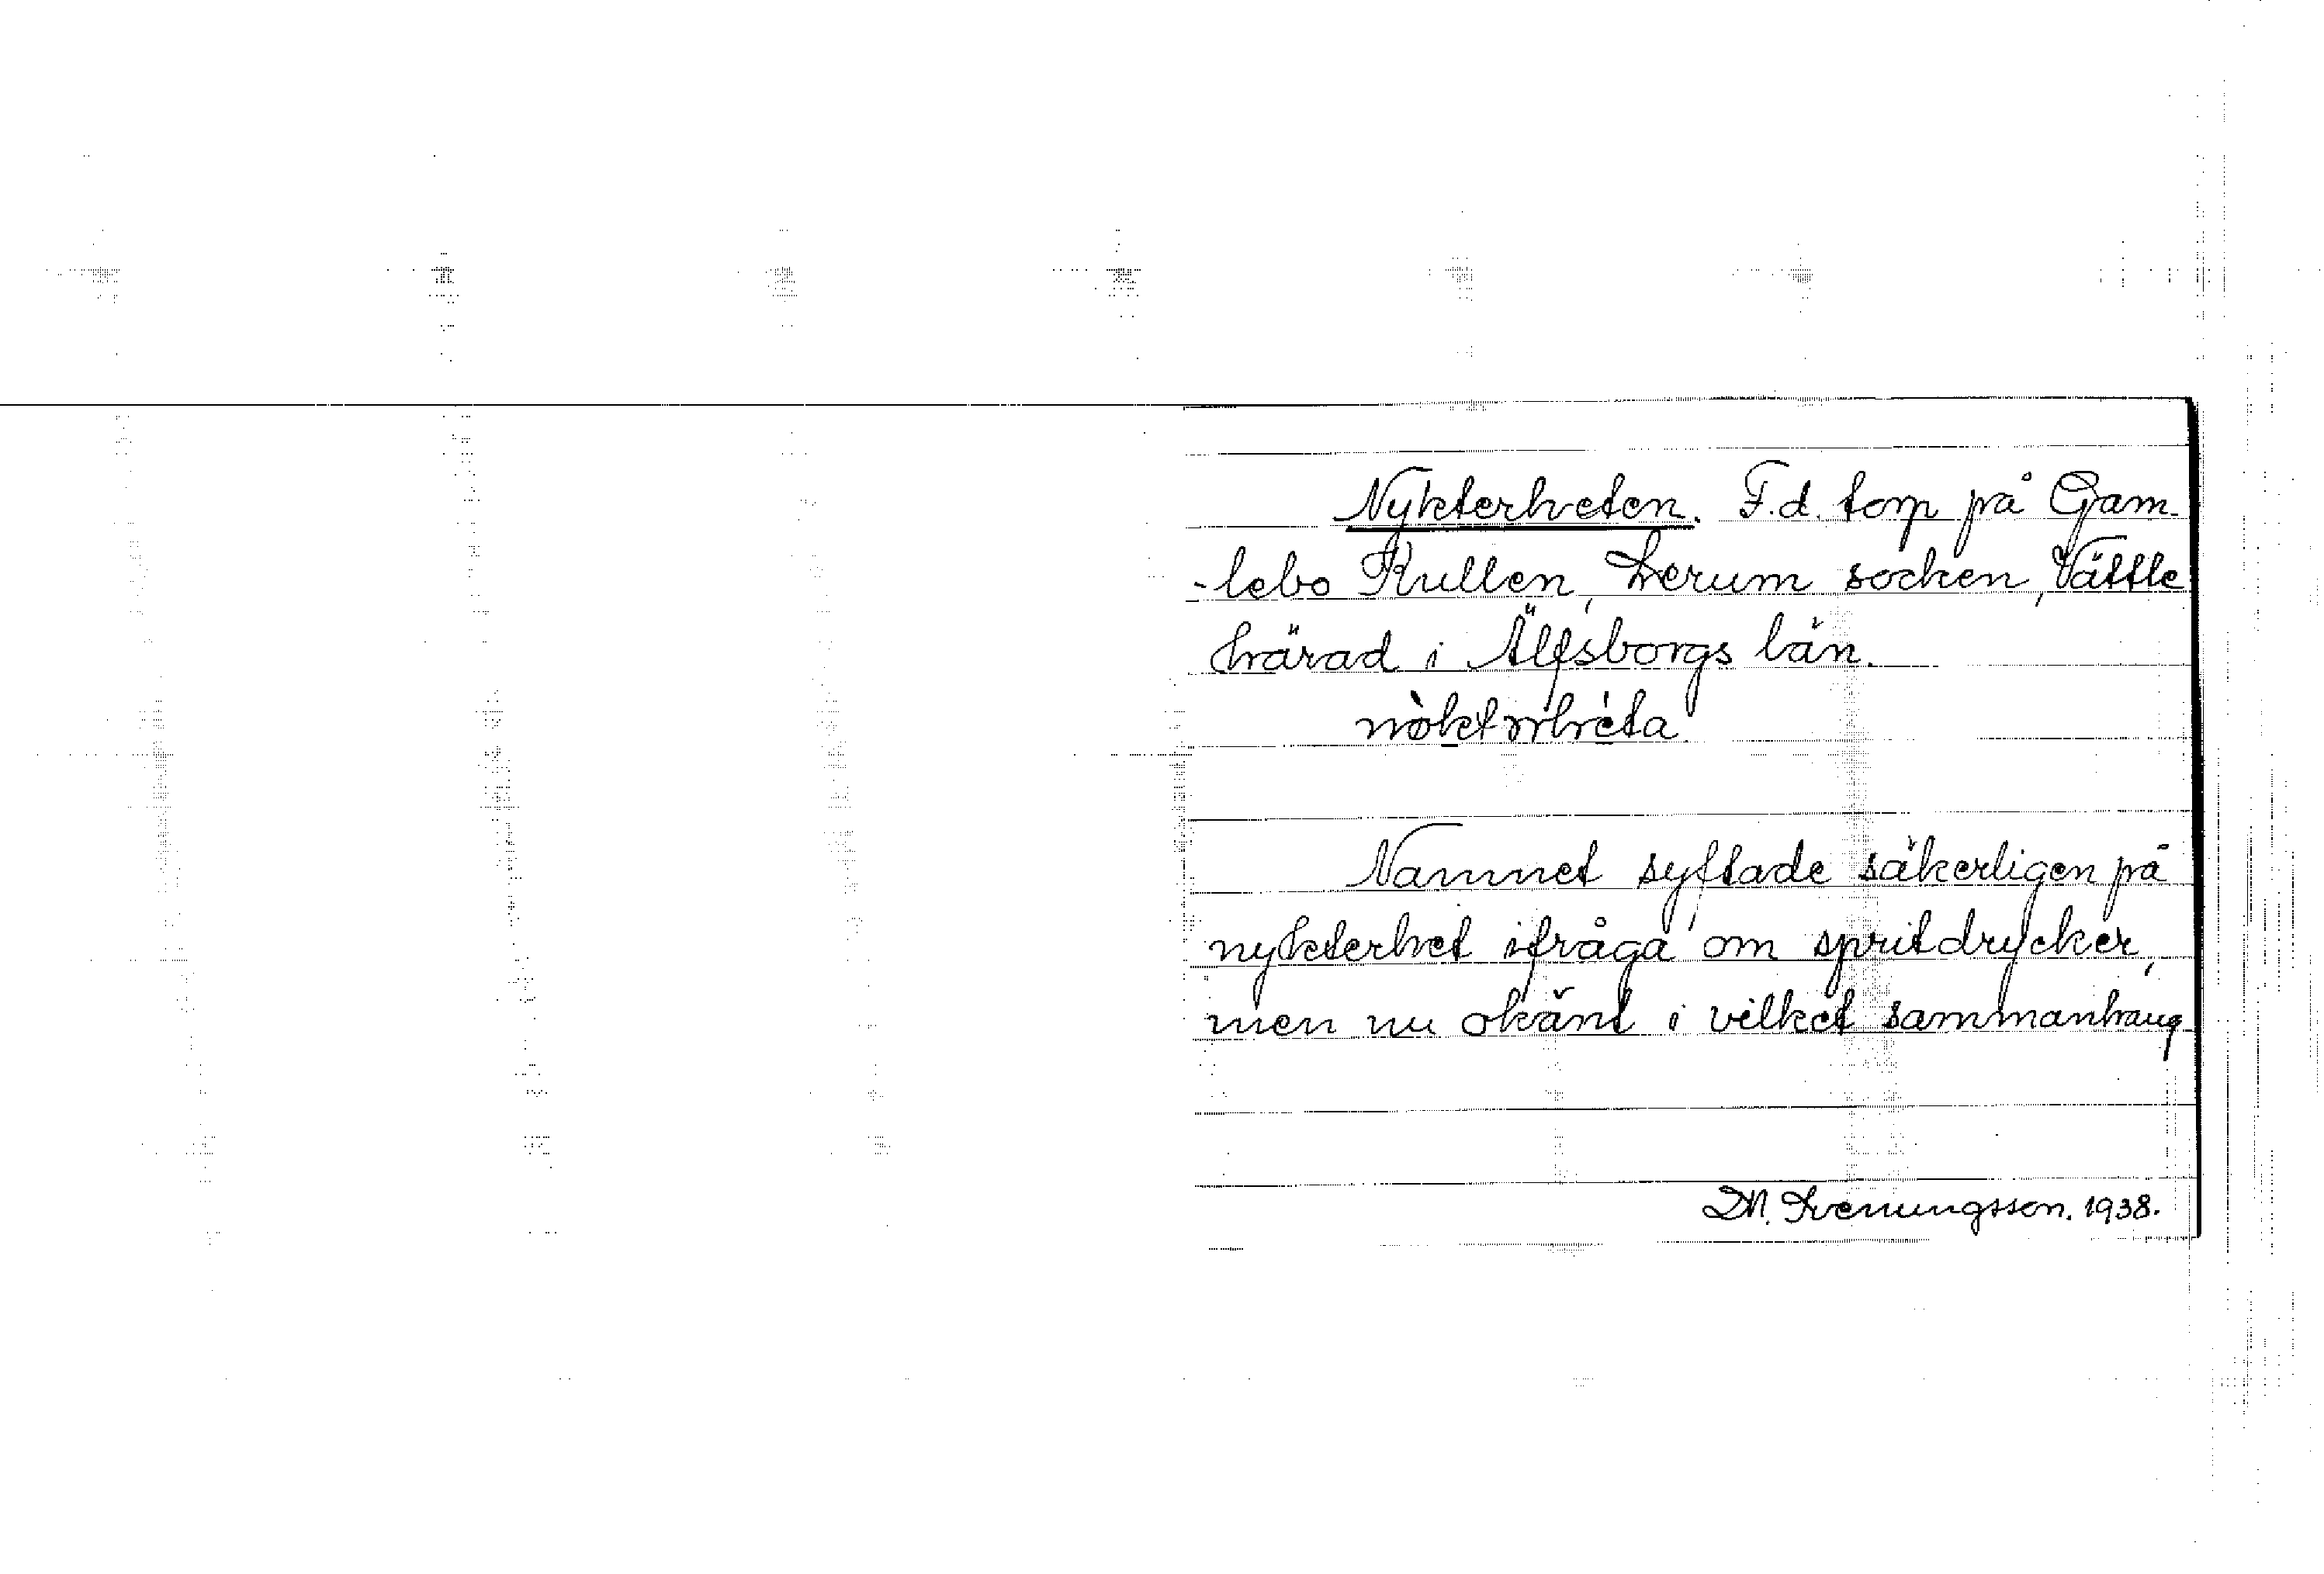 Nykterheten. F.d. torp på Gam-
-lebo Kullen, Lerum socken, Vättle
härad i Älfsborgs län.

Namnet syftade säkerligen på
nykterhet ifråga om spritdrycker,
men nu okänt i vilket sammanhang
M. Svenungsson. 1938.